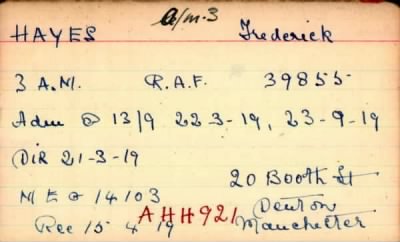 a/m.3
HAYES Frederick
3 A.M. R.A.F. 39855
Adm @ 13/9 22 3-19, 23-9-19
DIR 21-3-19
20 Booth St
M E @ 14103 Denton
Rec 15 4 19 AHH921 Manchetter